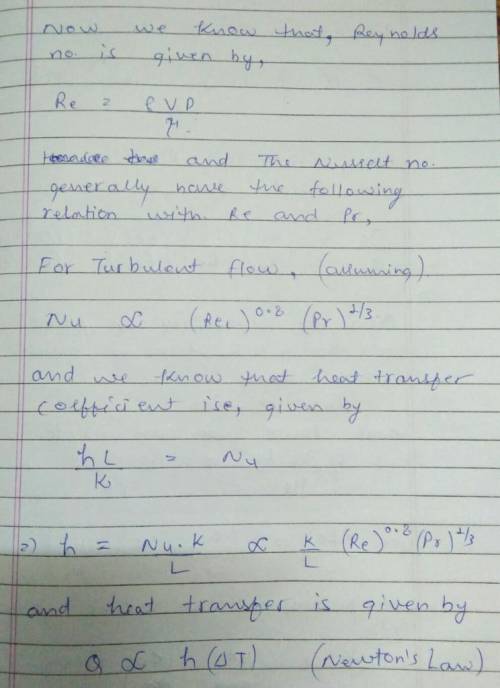 Now we know that, Reynolds
no. is given by,
Re = ρVD
η.
and The Nusselt no.
generally have the following
relation with Re and Pr,
For Turbulent flow, (assuming)
Nu ∝ (Re,)^0.8 (Pr)^1/3
and we know that heat transfer
coefficient ise, given by
hL = Nu
K
⇒) h = Nu.K ∝ K (Re)^0.8 (Pr)^1/3
L L
and heat transfer is given by
Q ∝ h(ΔT) (Newton's Law)